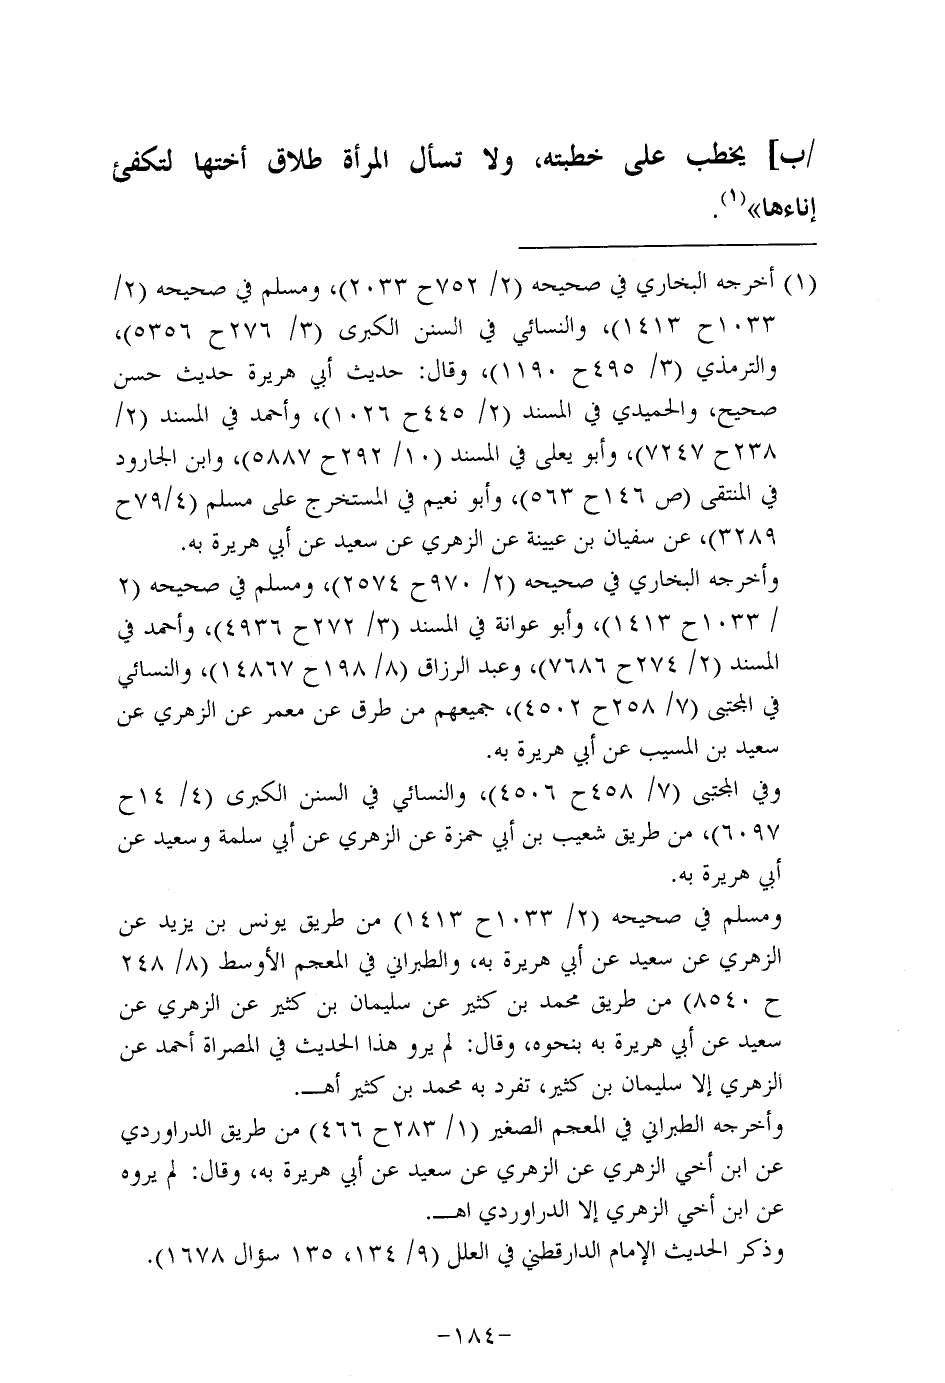 /ب] يخطب على خطبته، ولا تسأل المرأة طلاق أختها لتكفئ
إناءها»(١).
(١) أخرجه البخاري في صحيحه (٢/ ٧٥٢ح ٢٠٣٣)، ومسلم في صحيحه (٢/
١٠٣٣ح ١٤١٣)، والنسائي في السنن الكبرى (٣/ ٢٧٦ح ٥٣٥٦)،
والترمذي (٣/ ٤٩٥ح ١١٩٠)، وقال: حديث أبي هريرة حديث حسن
صحيح، والحميدي في المسند (٢/ ٤٤٥ح ١٠٢٦)، وأحمد في المسند (٢/
٢٣٨ح ٧٢٤٧)، وأبو يعلى في المسند (١٠/ ٢٩٢ح ٥٨٨٧)، وابن الجارود
في المنتقى (ص ١٤٦ح ٥٦٣)، وأبو نعيم في المستخرج على مسلم (٧٩/٤ح
٣٢٨٩)، عن سفيان بن عيينة عن الزهري عن سعيد عن أبي هريرة به.
وأخرجه البخاري في صحيحه (٢/ ٩٧٠ح ٢٥٧٤)، ومسلم في صحيحه (٢
/ ١٠٣٣ح ١٤١٣)، وأبو عوانة في المسند (٣/ ٢٧٢ح ٤٩٣٦)، وأحمد في
المسند (٢/ ٢٧٤ح ٧٦٨٦)، وعبد الرزاق (٨/ ١٩٨ح ١٤٨٦٧)، والنسائي
في المجتبى (٧/ ٢٥٨ح ٤٥٠٢)، جميعهم من طرق عن معمر عن الزهري عن
سعيد بن المسيب عن أبي هريرة به.
وفي المجتبى (٧/ ٤٥٨ح ٤٥٠٦)، والنسائي في السنن الكبرى (٤/ ١٤ح
٦٠٩٧)، من طريق شعيب بن أبي حمزة عن الزهري عن أبي سلمة وسعيد عن
أبي هريرة به.
ومسلم في صحيحه (٢/ ١٠٣٣ح ١٤١٣) من طريق يونس بن يزيد عن
الزهري عن سعيد عن أبي هريرة به، والطبراني في المعجم الأوسط (٨/ ٢٤٨
ح ٨٥٤٠) من طريق محمد بن كثير عن سليمان بن كثير عن الزهري عن
سعيد عن أبي هريرة به بنحوه، وقال: لم يرو هذا الحديث في المصراة أحمد عن
الزهري إلا سليمان بن كثير، تفرد به محمد بن كثير أهـ.
وأخرجه الطبراني في المعجم الصغير (١/ ٢٨٣ح ٤٦٦) من طريق الدراوردي
عن ابن أخي الزهري عن الزهري عن سعيد عن أبي هريرة به، وقال: لم يروه
عن ابن أخي الزهري إلا الدراوردي اهـ.
وذكر الحديث الإمام الدارقطني في العلل (٩/ ١٣٤، ١٣٥ سؤال ١٦٧٨).
-١٨٤-